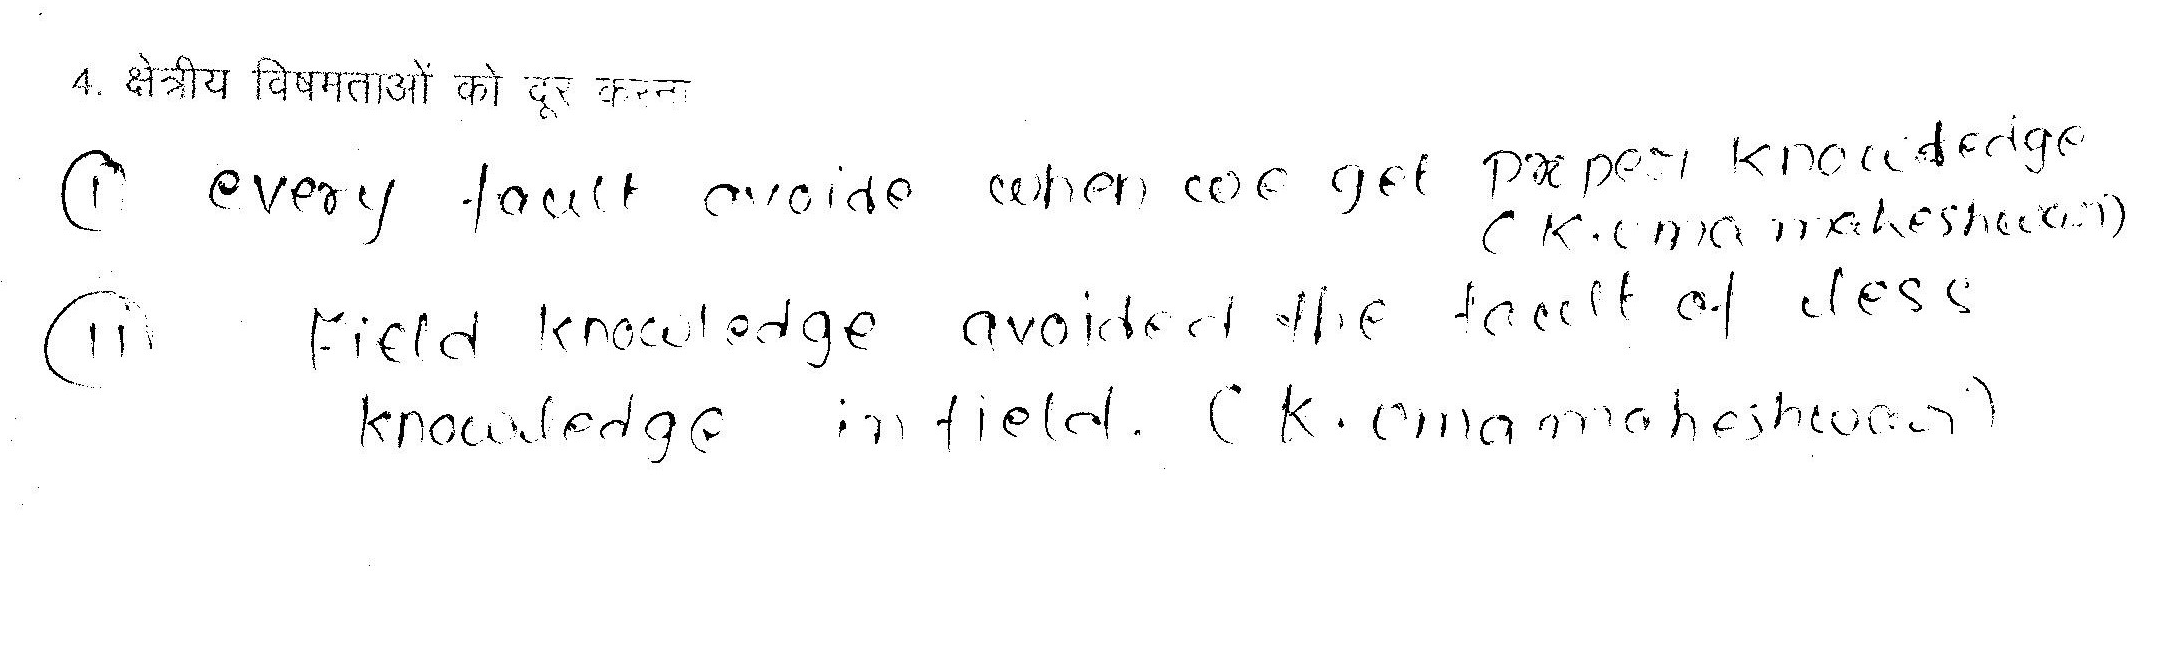 4. क्षेत्रीय विषमताओं को दूर करना
(i) every fault avoide when we get proper knowledge
(K.uma maheshwari)
(ii) Field knowledge avoided the fault of less
knowledge in field. (K.uma maheshwari)